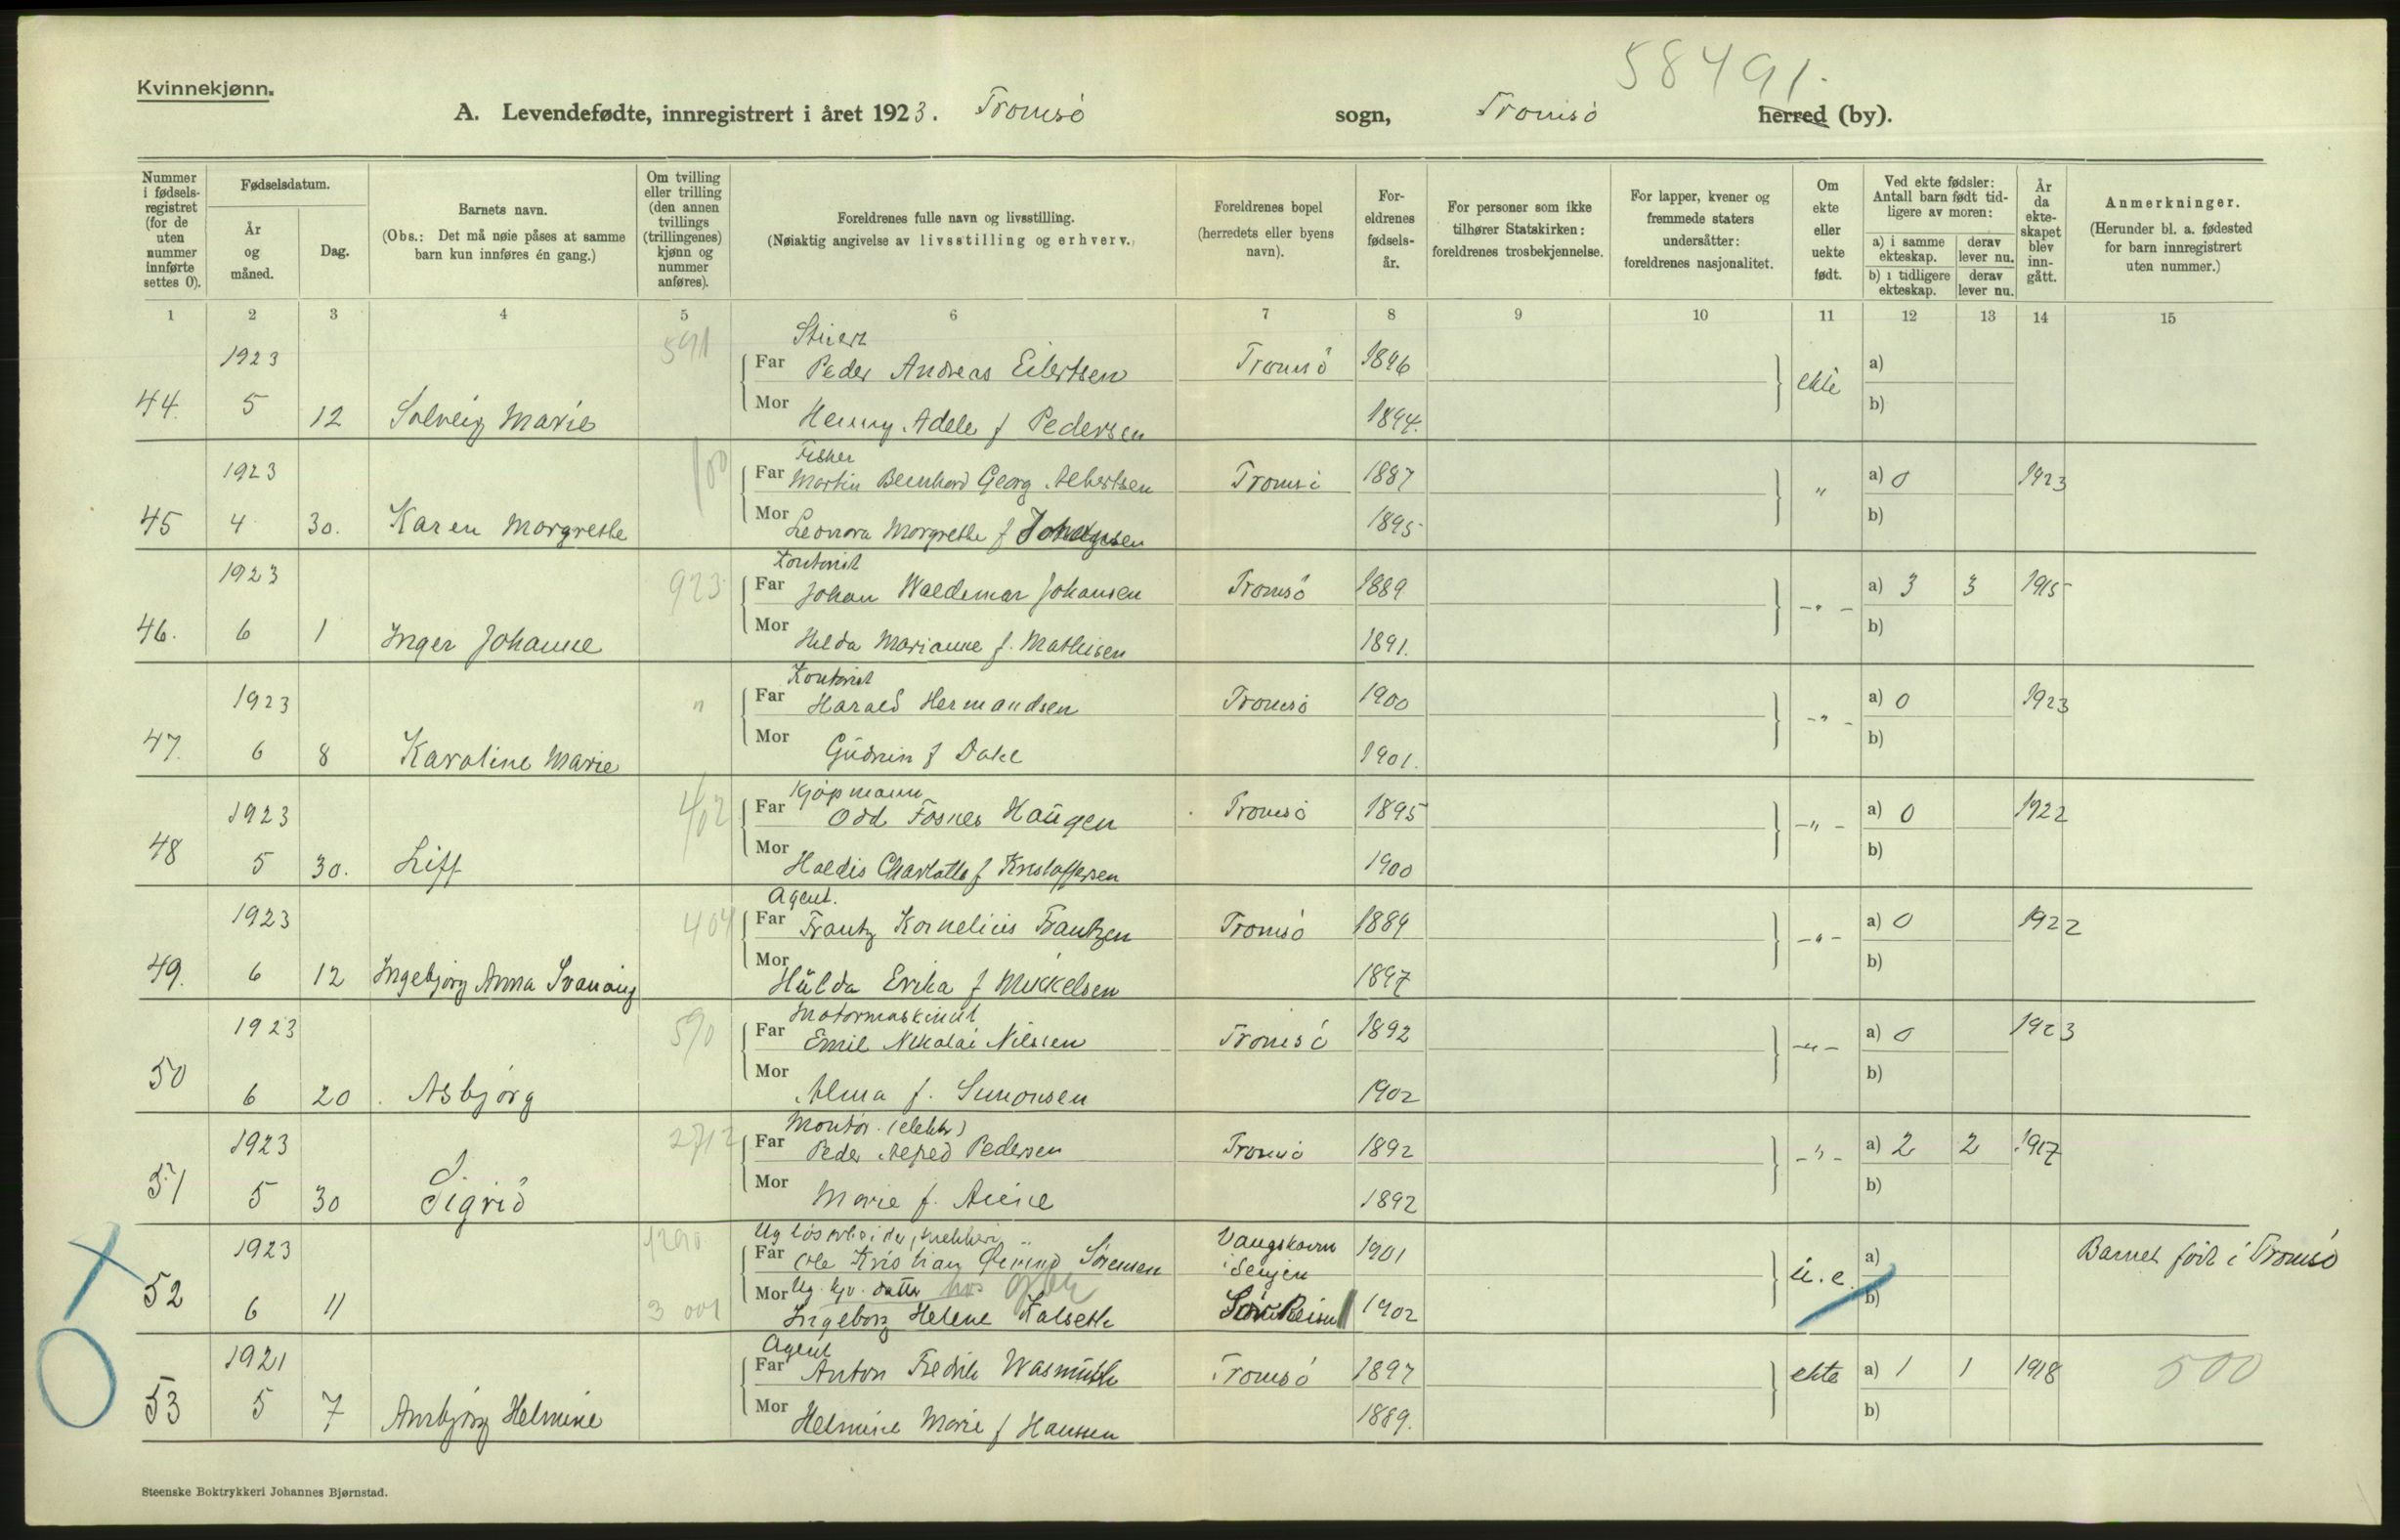 58491.
Kvinnekjønn.
A. Levendefødte, innregistrert i året 1923. Tromsö sogn, Tromsö herred (by).
Nummer i fødsels-registret (for de uten nummer innførte settes 0).
Fødselsdatum.
År og måned.
Dag.
Barnets navn.
(Obs.: Det må nøie påses at samme barn kun innføres én gang.)
Om tvilling eller trilling (den annen tvillings (trillingenes) kjønn og nummer anføres).
Foreldrenes fulle navn og livsstilling.
(Nøiaktig angivelse av livsstilling og erhverv.)
Foreldrenes bopel (herredets eller byens navn).
For-eldrenes fødsels-år.
For personer som ikke tilhører Statskirken: foreldrenes trosbekjennelse.
For lapper, kvener og fremmede staters undersåtter: foreldrenes nasjonalitet.
Om ekte eller uekte født.
Ved ekte fødsler: Antall barn født tid-ligere av moren:
a) i samme ekteskap. derav lever nu.
b) i tidligere ekteskap. derav lever nu.
År da ekte-skapet blev inn-gått.
Anmerkninger.
(Herunder bl. a. fødested for barn innregistrert uten nummer.)
1 2 3 4 5 6 7 8 9 10 11 12 13 14 15
591
1923 Far Peder Andreas Eilertsen Tromsö 1896 ekte a)
44. 5 12 Solveig Marie Mor Henny Adele f Pedersen 1894. b)
100 Fisker
1923 Far Martin Bernhard Georg Albertsen Tromsö 1887 " a) 0 1923
45 4 30. Karen Margrethe Mor Leonora Margrethe f 1895 b)
Kontorist
1923 923 Far Johan Waldemar Johansen Tromsö 1889 -"- a) 3 3 1915
46. 6 1 Inger Johanne Mor Hilda Marianne f. Mathisen 1891. b)
Kontorist
1923 " Far Harald Hermandsen Tromsö 1900 -"- a) 0 1923
47. 6 8 Karoline Marie Mor Gudrun f Dahl 1901. b)
Kjøpmann
1923 402 Far Odd Fosnes Haugen Tromsö 1895 -"- a) 0 1922
48 5 30. Liff Mor Haldis Charlotte f Kristoffersen 1900 b)
Agent.
1923 404 Far Frantz Kornelius Frantzen Tromsö 1889 -"- a) 0 1922
49. 6 12 Ingebjørg Anna Mor Hulda Erika f Mikkelsen 1897 b)
Motormaskinist
1923 590 Far Emil Nikolai Nilssen Tromsö 1892 -"- a) 0 1923
50 6 20. Asbjørg Mor Alma f. Simonsen 1902 b)
Montør. (elektr)
1923 2712 Far Peder Alfred Pedersen Tromsö 1892 -"- a) 2 2 1917
51 5 30 Sigrid Mor Marie f. 1892 b)
1290 Ug løsarbeider,
1923 Far Ole Kristian Sörensen Vangshavn i Senjen 1901 u.e. a) Barnet födt i Tromsö
52 6 11 3 001 Mor Ug. hos
Ingeborg Helene 1902 b)
Agent
1921 Far Anton Fredrik Wasmuth Tromsö 1897 ekte a) 1 1 1918 500
53 5 7 Annbjørg Helmine Mor Helmine Marie f Hansen 1889. b)
Steenske Boktrykkeri Johannes Bjørnstad.